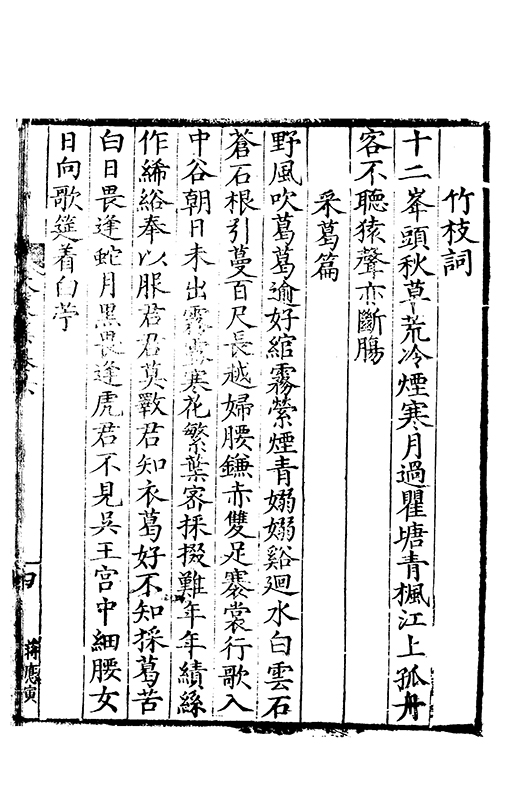 竹枝詞
十二峯頭秋草荒冷煙寒月過瞿塘青楓江上孤舟
客不聽猿聲亦斷腸
采葛篇
野風吹葛葛逾好綰霧縈煙青嫋嫋谿迴水白雲石
蒼石根引蔓百尺長越婦腰鎌赤雙足褰裳行歌入
中谷朝日未出露寒花繁葉密採掇難年年績絲
作絺綌奉以服君君莫斁君知衣葛好不知採葛苦
白日畏逢蛇月黑畏逢虎君不見吳王宫中細腰女
日向歌筵着白苧
蔣應寅